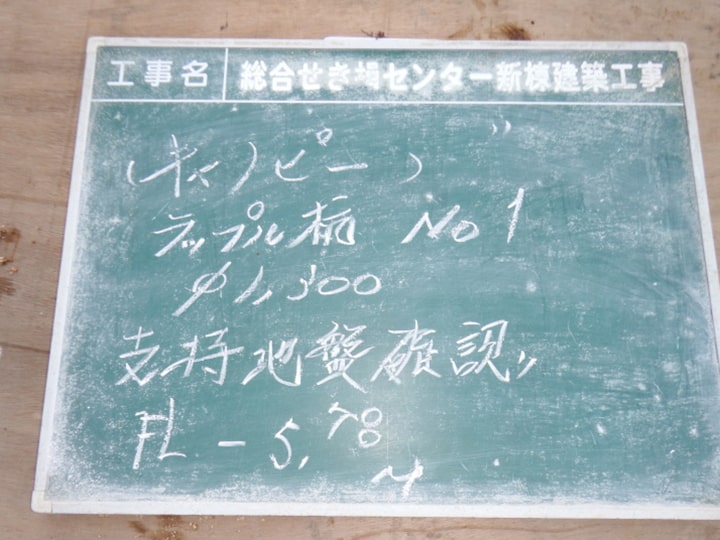 工事名 総合せき損センター新棟建築工事
(キャノピー)
ラップル楠 No 1
φ1,300
支持地盤確認
FL - 5.78